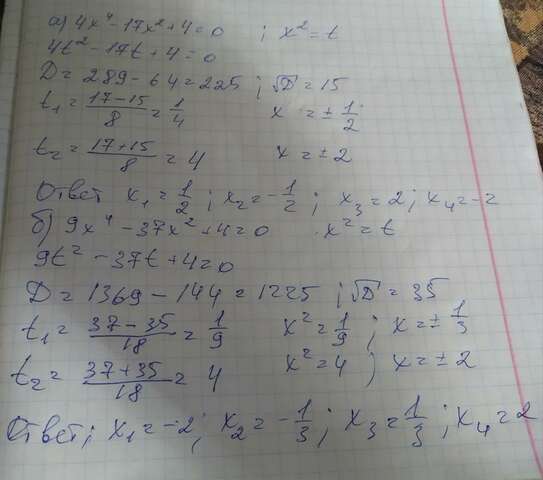 а) 4x⁴-17x²+4=0 ; x²=t
4t²-17t+4=0
D=289-64=225 ; √D=15
t₁=(17-15)/8=1/4 x=±1/2
t₂=(17+15)/8=4 x=±2
Ответ x₁=1/2; x₂=-1/2; x₃=2; x₄=-2
б) 9x⁴-37x²+4=0 x²=t
9t²-37t+4=0
D=1369-144=1225 ; √D=35
t₁=(37-35)/18=1/9 x²=1/9; x=±1/3
t₂=(37+35)/18=4 x²=4; x=±2
Ответ; x₁=-2; x₂=-1/3; x₃=1/3; x₄=2